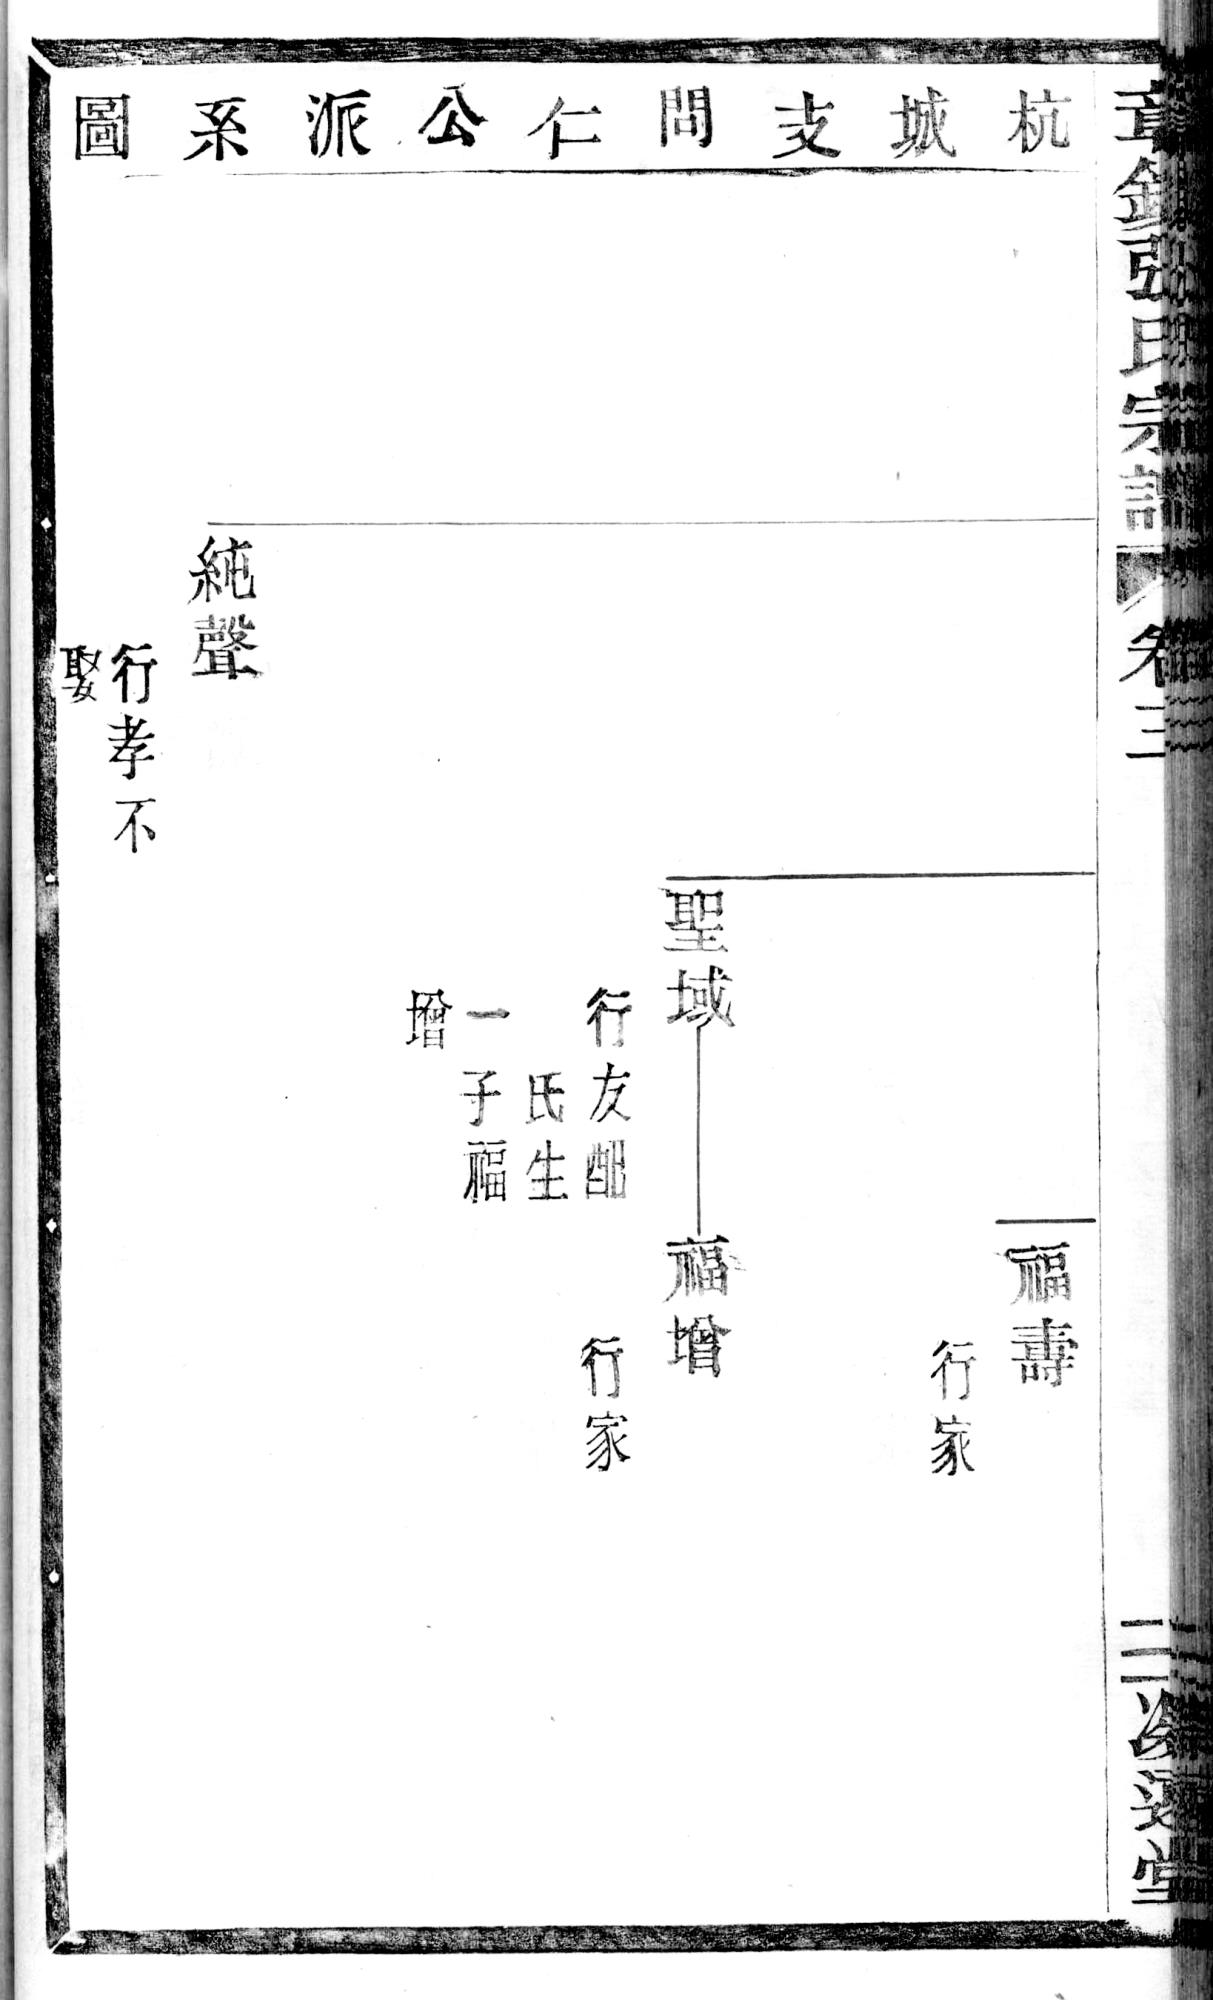 杭城支問仁公派系圖
張氏宗譜
卷三
福壽
行家
聖域
行友配
氏生
一子福
增
福增
行家
純聲
行孝不
娶
二
堂